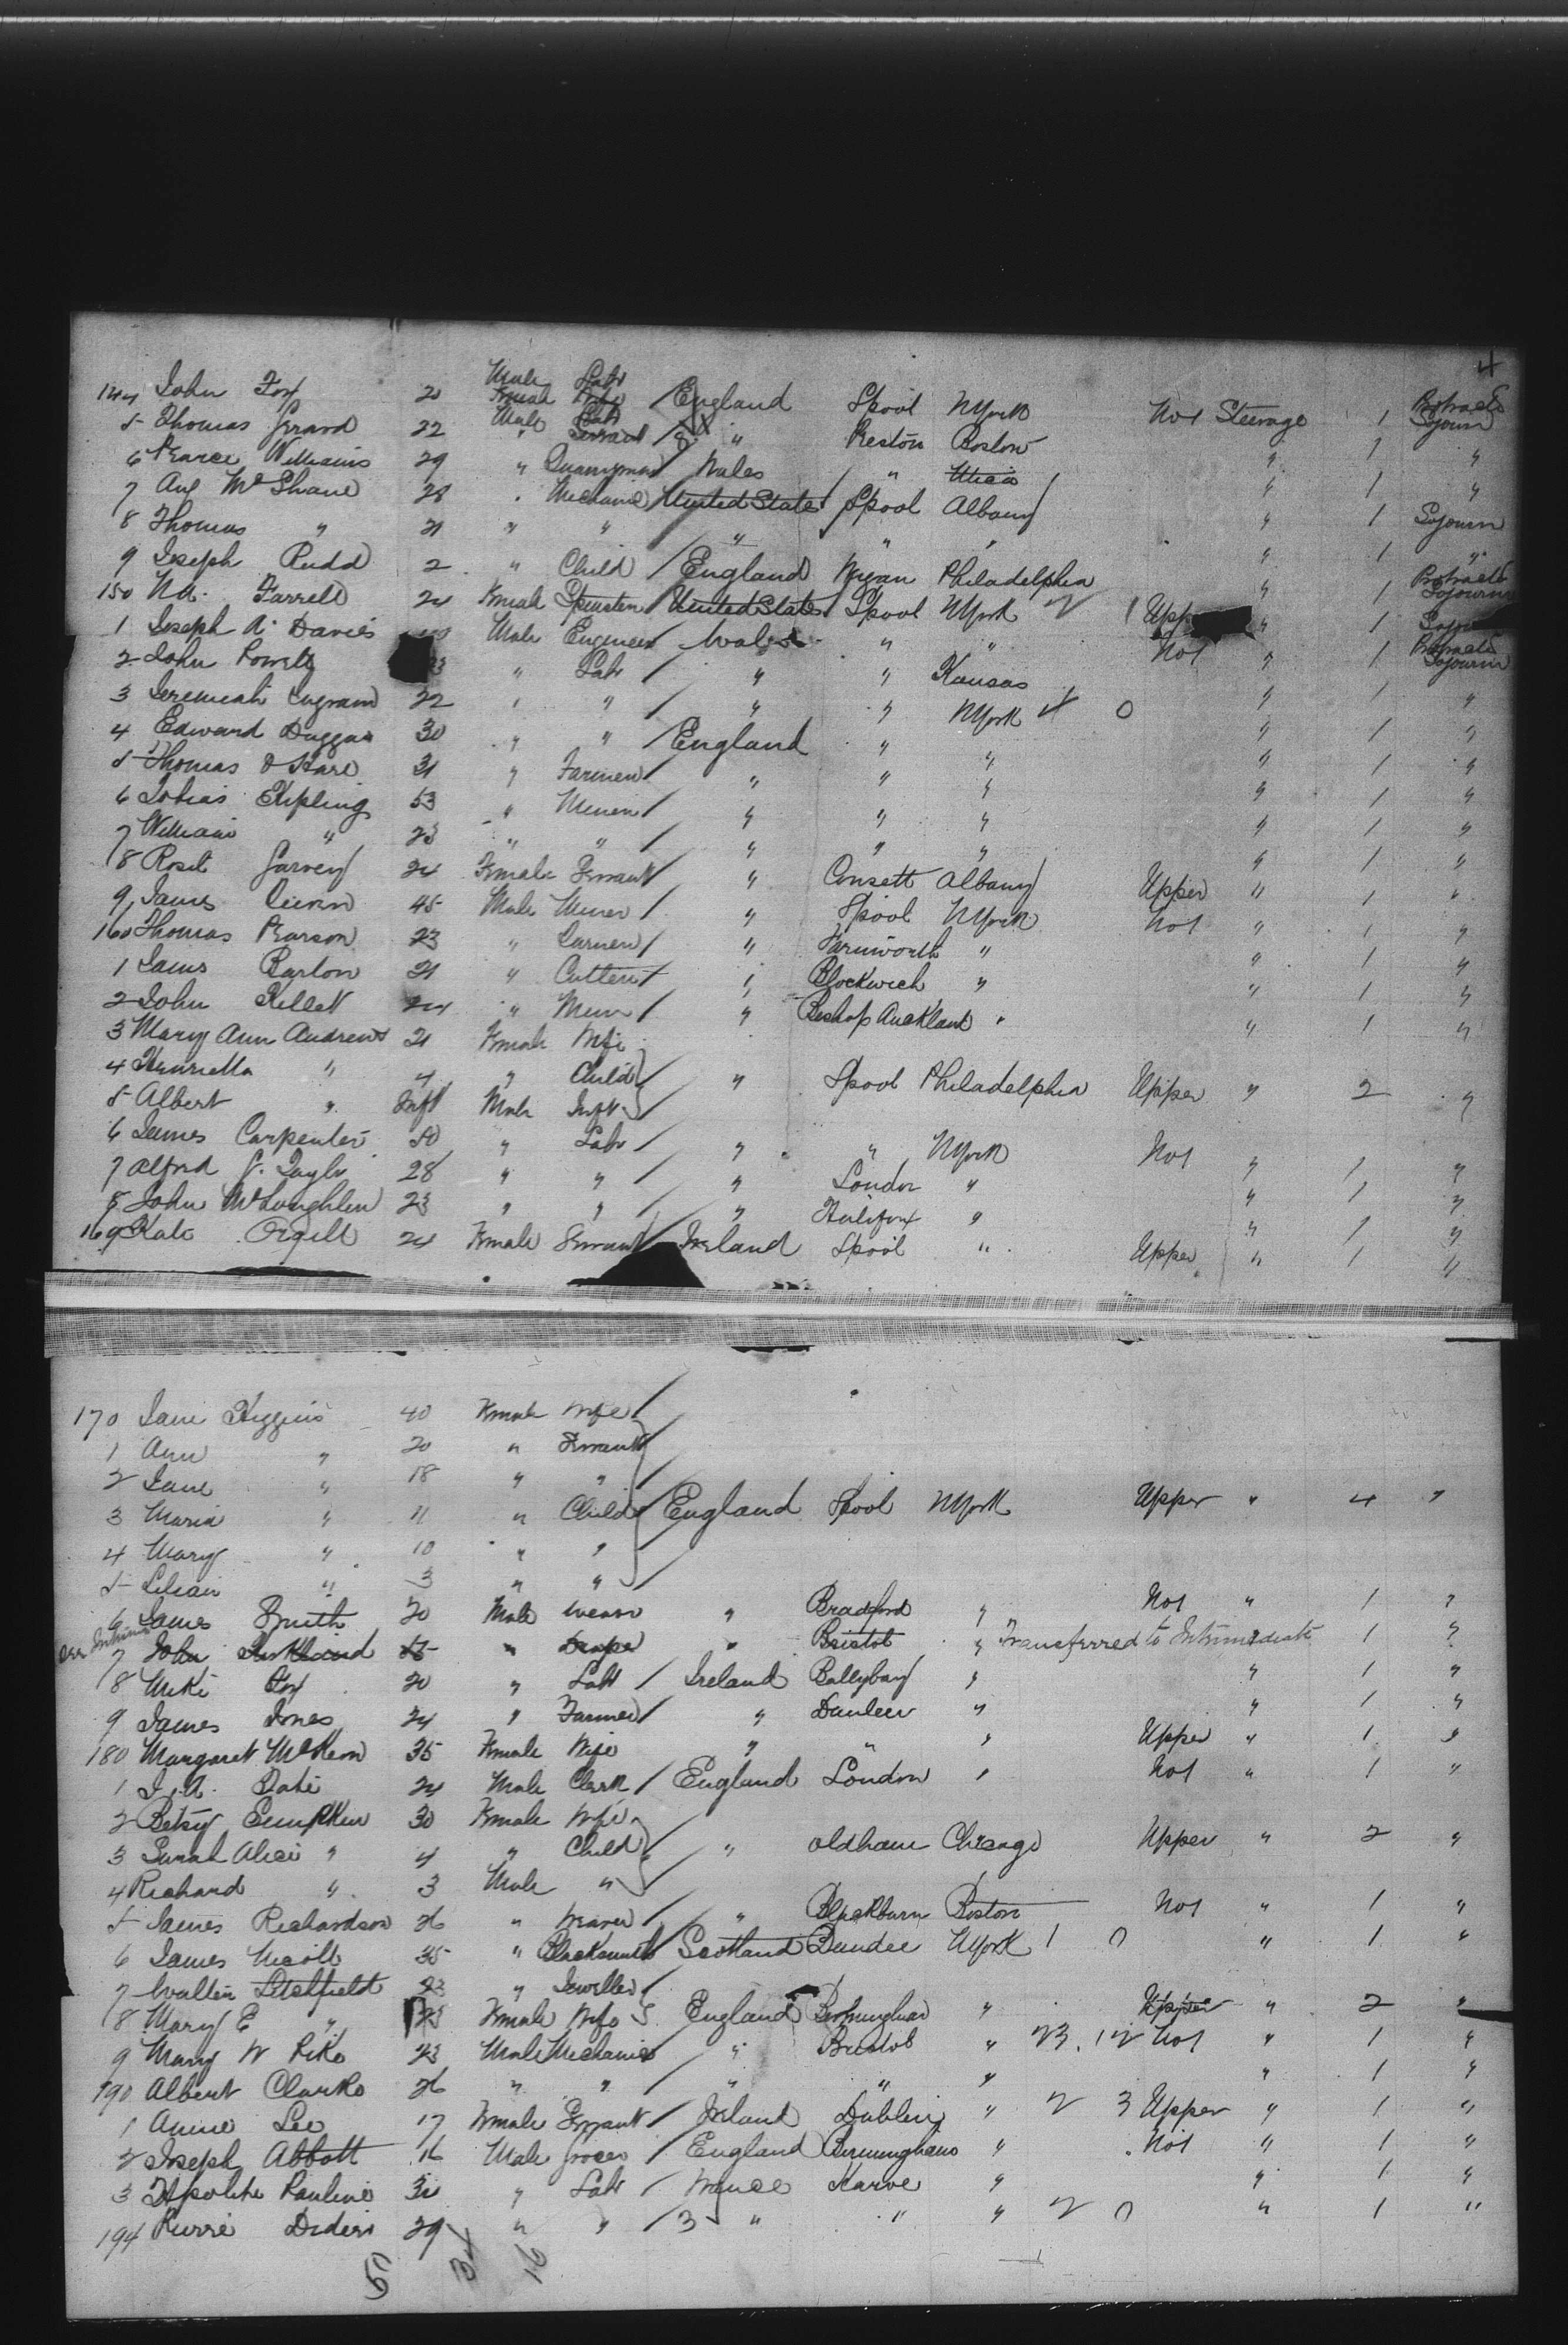 4
144 John Fox 20 Male Labr England Lpool NYork Not Steerage 1 Protracted Sojourn
5 Thomas Gerard 22 " Servant " Preston Boston " 1 "
6 Pearce Williams 29 " Quarryman Wales " Utica " 1 "
7 Aug McShane 28 " Mechanic United States Lpool Albany " 1 Sojourn
8 Thomas " 21 " " " " " " 1 "
9 Joseph Rudd 2 " Child England Wigan Philadelphia " 1 Protracted Sojourn
150 Farrell 24 Female Spinster United States Lpool NYork 2 1 Upper " 1
1 Joseph A. Davies Male Engineer Wales " " Not " 1 Protracted Sojourn
2 John " Labr " " Kansas " 1 "
3 Jeremiah Ingram 22 " " " " NYork 4 0 " 1 "
4 Edward Duggan 30 " " England " " " 1 "
5 Thomas O Hare 31 " Farmer " " " " 1 "
6 Tobias Kipling 53 " Miner " " " " 1 "
7 William " 23 " " " " " " 1 "
8 Rose Garvey 24 Female Servant " Consett Albany Upper " 1 "
9 James 45 Male Miner " Lpool NYork Not " 1 "
160 Thomas Pearson 23 " " Farnworth " " 1 "
1 James Barlow 21 " Cutter " Blockwich " " 1 "
2 John Kellett 24 " Miner " Bishop Auckland " " 1 "
3 Mary Ann Andrews 21 Female Wife
4 Henrietta " 4 " Child " Lpool Philadelphia Upper " 2 "
5 Albert " Inft Male Inft
6 James Carpenter 50 " Labr " " NYork Not " 1 "
7 Alfred J. Taylor 28 " " " London " " 1 "
8 John McLoughlin 23 " " " Halifax " " 1 "
169 Kate Orgill 24 Female Servant Ireland Lpool " Upper " 1 "
170 Jane Higgins 40 Female Wife
1 Ann " 20 " Servant
2 Jane " 18 " "
3 Maria " 11 " Child England Lpool NYork Upper " 4 "
4 Mary " 10 " "
5 Lilian " 3 " "
6 James Smith 20 Male Weaver " Bradford " Not " 1 "
7 John 15 " Draper " Bristol " Transferred to Intermediate 1 "
8 Mike Fox 20 " Labr Ireland Ballybay " " 1 "
9 James Jones 24 " Farmer " Dunleer " " 1 "
180 Margaret McKeon 35 Female Wife " " " Upper " 1 "
1 J. A. Date 24 Male Clerk England London " Not " 1 "
2 Betsy Simpkin 30 Female Wife
3 Sarah Alice " 4 " Child " Oldham Chicago Upper " 2 "
4 Richard " 3 Male "
5 James Richardson 26 " Weaver " Blackburn Boston Not " 1 "
6 James Nicoll 35 " Blacksmith Scotland Dundee NYork 1 0 " 1 "
7 Walter Litchfield 23 " Jeweller
8 Mary E " 23 Female Wife England Birmingham " Upper " 2 "
9 Mary W Pike 23 Male Mechanic " Bristol " 23. 12 Not " 1 "
190 Albert Clarke 26 " " " " " " 1 "
1 Annie Lee 17 Female Servant Ireland Dublin " 2 3 Upper " 1 "
2 Joseph Abbott 16 Male Grocer England Birmingham " Not " 1 "
3 Hipolite Pauline 30 " Labr France Havre " " 1 "
194 Pierre Dideri 29 " " 3 " " " 2 0 " 1 "
50 34 16